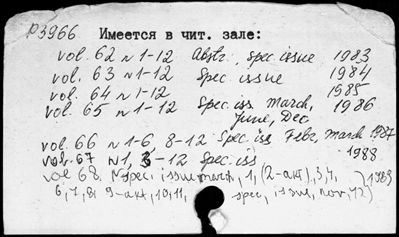 P3966 Имеется в чит. зале:
vol. 62 N 1-12 Abstr., Spec issue 1983
vol. 63 N 1-12 Spec issue 1984
vol. 64 N 1-12 1985
vol. 65 N 1-12 Spec iss March, 1986
June, Dec
vol. 66 N 1-6, 8-12 Spec iss Febr, March 1987
vol. 67 N1, 3-12 Spec iss 1988
vol 68. spec. issue march, 1, (2-акт), 3, 4, 1989
6, 7, 8, 9-акт, 10, 11, spec, issue, nov, 12)